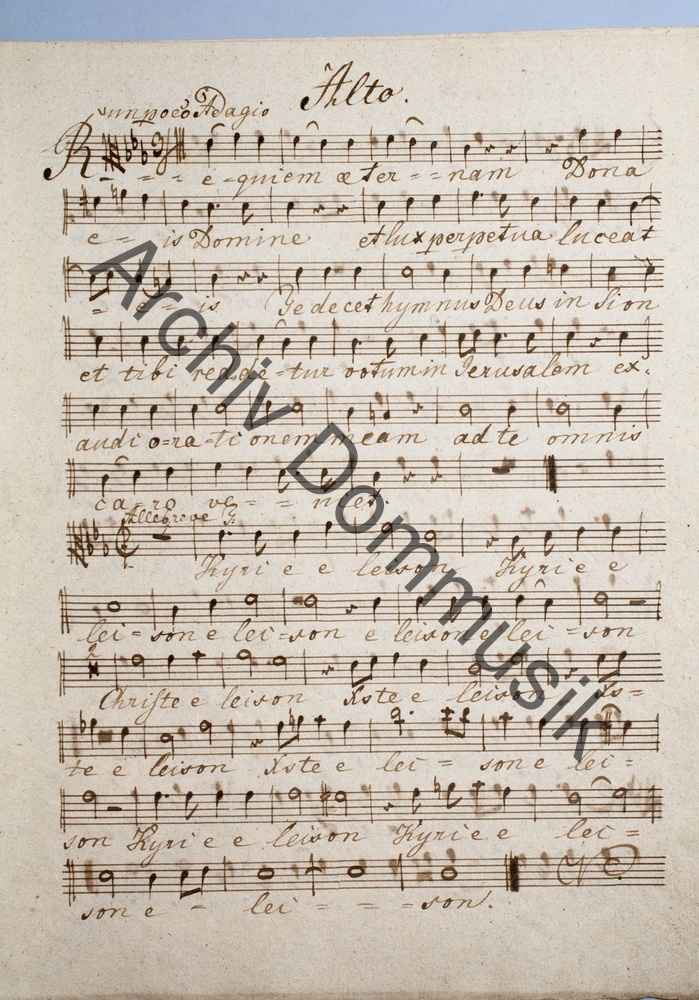 Alto.
un poco Adagio
R - - - e - quiem æter - - nam Dona
e - is Domine et lux perpetua luceat
- e - is Te decet hymnus Deus in Sion
et tibi redde - tur votum in Jerusalem ex.
audi o - ra - ti onem meam ad te omnis
ca - ro ve - - niet.
Kyri e e leison Kyri e e
lei - son e lei - son e leison e lei - son
2
Christe e leison Xste e leison Xs =
te e leison Xste e lei = son e lei =
son Kyri e e leison Kyri e e lei =
son e - lei = = = son.
Archiv Dommusik